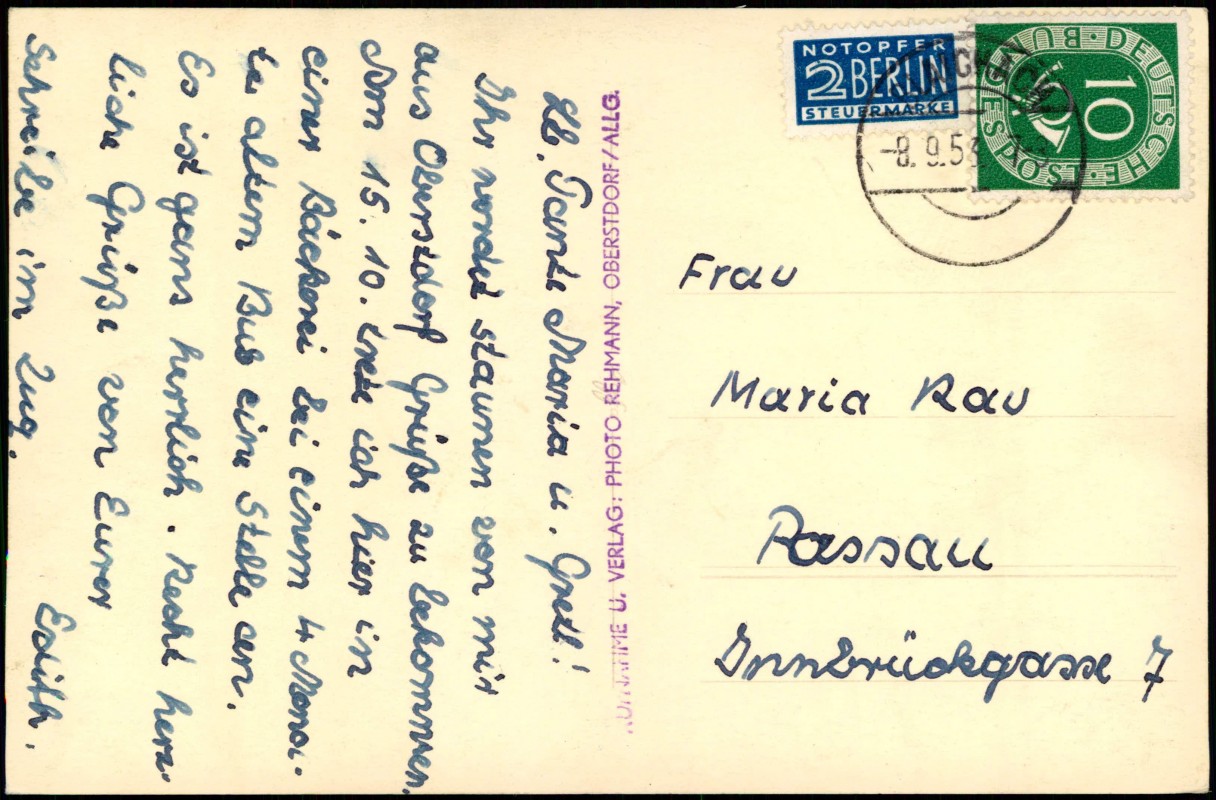 Lb. Tante Maria u. Gretl!
Ihr werdet staunen von mir
aus Oberstdorf Grüße zu bekommen.
Am 15.10. trete ich hier in
einer Bäckerei bei einem 4 Mona-
te altem Bub eine Stelle an.
Es ist ganz herrlich. Recht herz-
liche Grüße von Eurer
Edith.
Schreibe im Zug.
VERLAG: PHOTO REHMANN, OBERSTDORF/ALLG.
NOTOPFER
2 BERLIN
STEUERMARKE
DEUTSCHE BUNDESPOST
10
-8.9.53
Frau
Maria Rau
Passau
Innbrückgasse 7